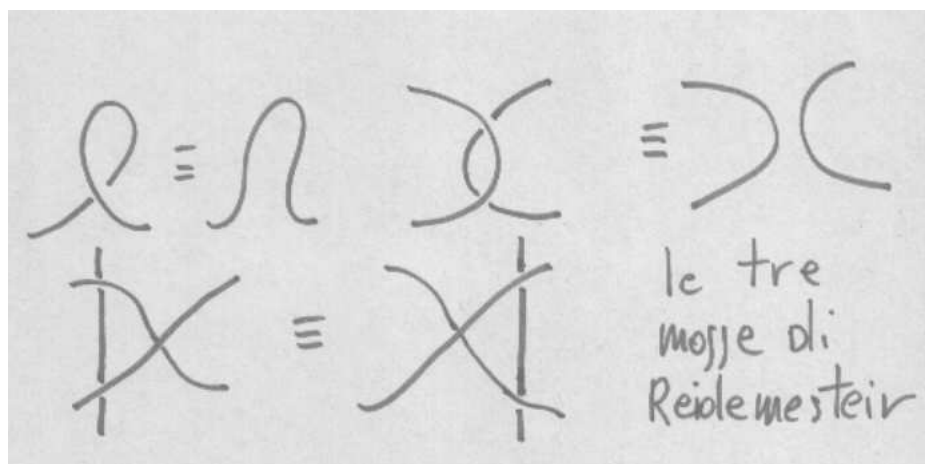 le tre
mosse di
Reidemesteir